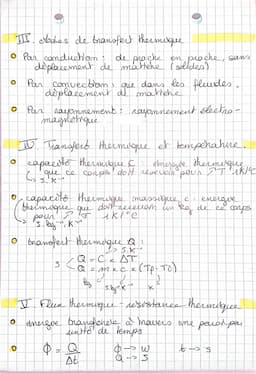 III. Modes de transfert thermique
Par conduction : de proche en proche, sans
déplacement de matière (solides)
Par convection : que dans les fluides,
déplacement de matière
Par rayonnement : rayonnement électro-
magnétique
IV. Transfert thermique et température.
capacité thermique C : énergie thermique
que ce corps doit recevoir pour ↗ T 1K/°C
capacité thermique massique c : énergie
thermique que doit recevoir un kg de ce corps
pour ↗ T 1K/°C
transfert thermique Q :
Q = C × ΔT
Q = m × c × (Tf - Ti)
V. Flux thermique - résistance thermique
énergie transférée à travers une paroi par
unité de temps
Φ = Q Φ → W t → s
Δt Q → J